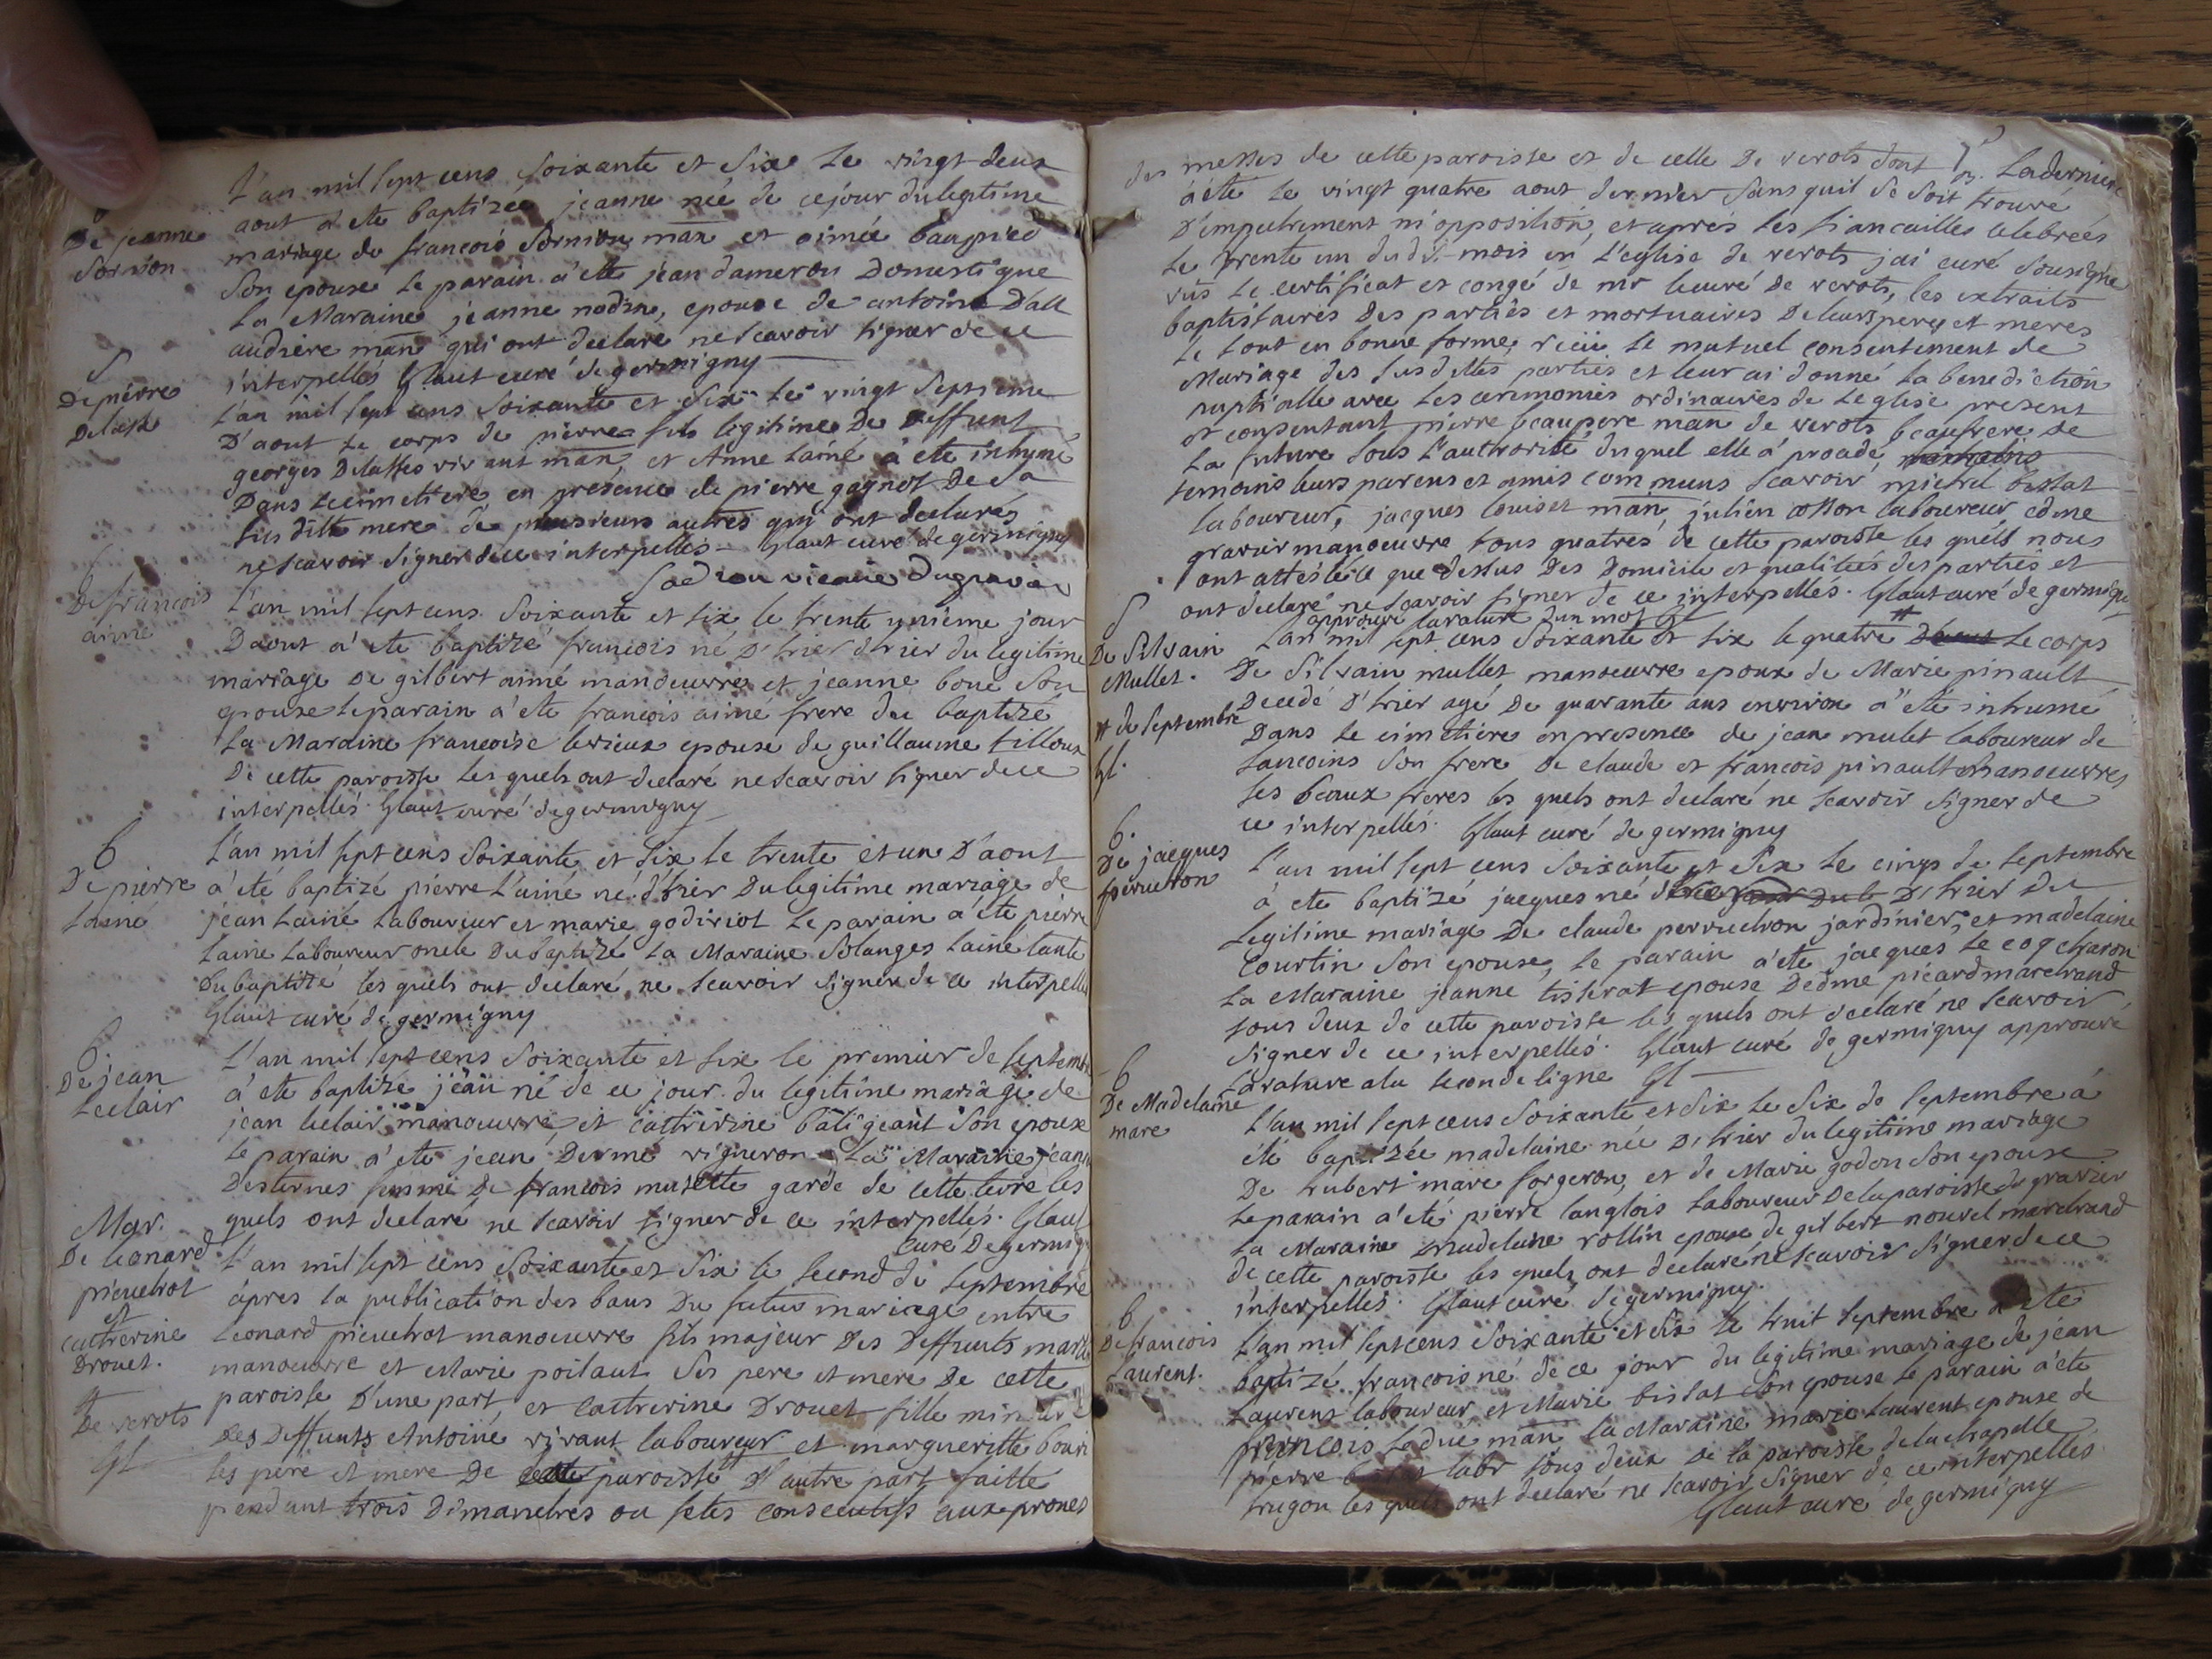 B
De jeanne
Sornion
L'an mil sept cens soixante et six le vingt deux
aout a ete baptizée jeanne née de ce jour du legitime
mariage de francois Sornion man et aimée baupied
son epouse le parain a ete jean dameron Domestique
la Maraine jeanne nodin, epouse de antoine D'all
audiere man qui ont declaré ne scavoir signer de ce
interpellés Glaut curé de germigny
S
De pierre
L'an mil sept cens soixante et six le vingt septieme
D'aout le corps de pierre fils legitime De Deffunt
georges Delasses vivant man, et Anne lainé à ete inhumé
Dans le cimettiere en presence de pierre gagnot De sa
sus ditte mere de plusieurs autres qui ont declarés
ne scavoir signer de ce interpellés - Glaut curé de germigny
vicaire Dugravier
De francois
aimé
L'an mil sept cens soixante et six le trente unième jour
Daout a' ete baptizé francois né D'hier du legitime
mariage de gilbert aimé manoeuvre et jeanne boue son
epouse le parain a' ete francois aimé frere du baptizé
La Maraine francoise lerieux epouse de guillaume tilloux
De cette paroisse les quels ont declaré ne scavoir signer de ce
interpellés Glaut curé de germigny
B
De pierre
lainé
L'an mil sept cens soixante et six le trente et un D'aout
a' eté baptizé pierre L'ainé né d'hier Du legitime mariage de
jean Lainé Laboureur et marie godiriot le parain a' ete pierre
Lainé Laboureur oncle Du baptizé La Maraine Solanges lainé tante
Du baptizé les quels ont declaré ne scavoir signer de ce interpellés
Glaut curé de germigny
B.
De jean
Leclair
L'an mil sept cens soixante et six le premier de septembre
a' ete baptize jean né de ce jour du legitime mariage de
jean leclair manoeuvre, et cathrine batigeant son epouse
le parain a' ete jean Dermé vigneron La Maraine jeanne
Desternes femme De francois musette garde de cette terre les
quels ont declaré ne scavoir signer de ce interpellés. Glaut
curé De germigny
Mar.
De leonard
pieuchot
et
cathrine
Drouet.
L'an mil sept cens soixante et six le second de septembre
après la publication des bans Du futur mariage entre
Leonard pieuchot manoeuvre fils majeur Des Deffunts
manoeuvre et Marie poilaut ses pere et mere De cette
paroisse D'une part et cathrine Drouet fille mineure
# De verots
Gl
des Deffunts Antoine vivant laboureur et margueritte
ses pere et mere De cette paroisse # D'autre part faitte
pendant trois Dimanches ou fetes consecutifs aux prones
des messes de cette paroisse et de celle De verots dont La derniere
a ete le vingt quatre aout dernier sans quil se soit trouvé
D'empechement ni opposition, et après les fiancailles celebrées
le trente un dudi-mois en l'eglise de verots jai curé sousigné
vus le certificat et congé de mr le curé De verots, les extraits
baptistaires Des parties et mortuaires De leurs peres et meres
le tout en bonne forme, recu le mutuel consentement de
Mariage des susdittes parties et leur ai donné la benediction
nuptialle avec les ceremonies ordinaires de Leglise present
et consentant pierre beaupere man de verots beaufrere de
La future sous l'authorité duquel elle a procedé,
temoins leurs parens et amis communs scavoir michel bissat
laboureur, jacques louiset man, julien cosson laboureur edme
gravier manoeuvre tous quatres de cette paroisse les quels nous
ont attesté ce que dessus Des Domicile et qualitées des parties et
ont declaré ne scavoir signer de ce interpellés. Glaut curé de germigny
approuvé la rature d'un mot Gl
S
De Silvain
Mullet.
L'an mil sept cens soixante et six le quatre # D'aout le corps
De Silvain mullet manoeuvre epoux de Marie pinault
# de septembre
Gl.
Decedé D'hier agé De quarante ans environ a' eté inhumé
Dans le cimetiere en presence de jean mulet laboureur de
sancoins son frere De claude et francois pinault Manoeuvres
ses beaux freres les quels ont declaré ne scavoir signer de
ce interpellés. Glaut curé de germigny
B.
De jacques
perruchon
L'an mil sept cens soixante et six le cinq de septembre
à ete baptizé jacques né D'hier du
legitime mariage De claude perruchon jardinier, et madelaine
courtin son epouse, le parain a' ete jacques le coq charon
La Maraine jeanne tisserat epouse Dedme picard marchand
tous deux de cette paroisse les quels ont declaré ne scavoir
signer de ce interpellés. Glaut curé de germigny approuvé
La rature a la seconde ligne Gl
B
De Madelaine
mare
L'an mil sept cens soixante et six le six de septembre à
été baptizée madelaine née D'hier du legitime mariage
De hubert mare forgeron, et de Marie godon son epouse
le parain a' eté pierre langlois laboureur De la paroisse du gravier
La Maraine madelaine rollin epouse de gilbert nouvel marchand
de cette paroisse les quels ont declaré ne scavoir signer de ce
interpellés. Glaut curé de germigny.
B
De francois
Laurent.
L'an mil sept cens soixante et six le huit septembre a ete
baptizé francois né de ce jour du legitime mariage de jean
Laurent laboureur et Marie bissat son epouse le parain a' ete
francois leduc man la Maraine marie laurent epouse de
pierre labr tous deux de la paroisse de la chapelle
hugon les quels ont declaré ne scavoir signer de ce interpellés
Glaut curé de germigny